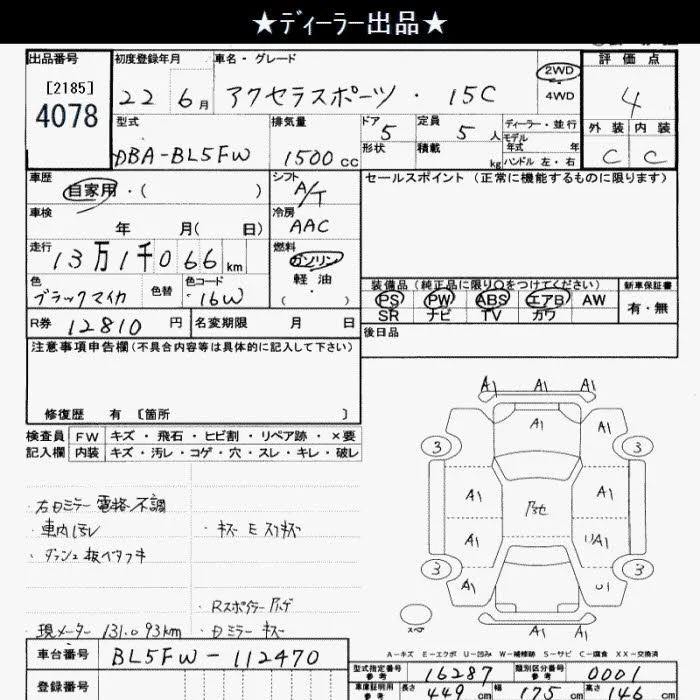 ★ディーラー出品★
出品番号
[2185]
4078
初度登録年月
22 6月
車名・グレード
アクセラスポーツ ・ 15C
2WD
4WD
評価点
4
外装 内装
C C
型式
DBA-BL5FW
排気量
1500 cc
ドア 5
形状
定員 5 人
積載 kg
ディーラー・並行
モデル
年式 年
ハンドル 左・右
車歴
自家用・( )
シフト
A/T
セールスポイント (正常に機能するものに限ります)
車検
年 月( 日)
冷房
AAC
走行
13万1千066 km
燃料
ガソリン
軽油
( ・ )
色
ブラックマイカ
色替
色コード
16W
装備品 (純正品に限り○をつけてください)
新車保証書
PS PW ABS エアB AW
SR ナビ TV カワ
有・無
R券 12810 円
名変期限 月 日
後日品
注意事項申告欄 (不具合内容等は具体的に記入して下さい)
修復歴 有 [箇所 ]
検査員 FW キズ・飛石・ヒビ割・リペア跡・×要
記入欄 内装 キズ・汚レ・コゲ・穴・スレ・キレ・破レ
・右Dミラー電格不調
・車内汚レ
・キズ E スリキズ
・ダッシュ板ベタツキ
・Rスポイラー
・現メーター 131.093km
・Dミラーキズ
A1 A1 A1
A1 A1
3 3
A1 A1
A1 A1
3 3
A1
A1 A1 A1
スペア
A-キズ E-エクボ U-凹み W-補修跡 S-サビ C-腐食 XX-交換済
車台番号 BL5FW-112470
型式指定番号 参考 16287
類別区分番号 参考 0001
登録番号
車庫証明用 参考 長さ 449 cm 幅 175 cm 高さ 146 cm